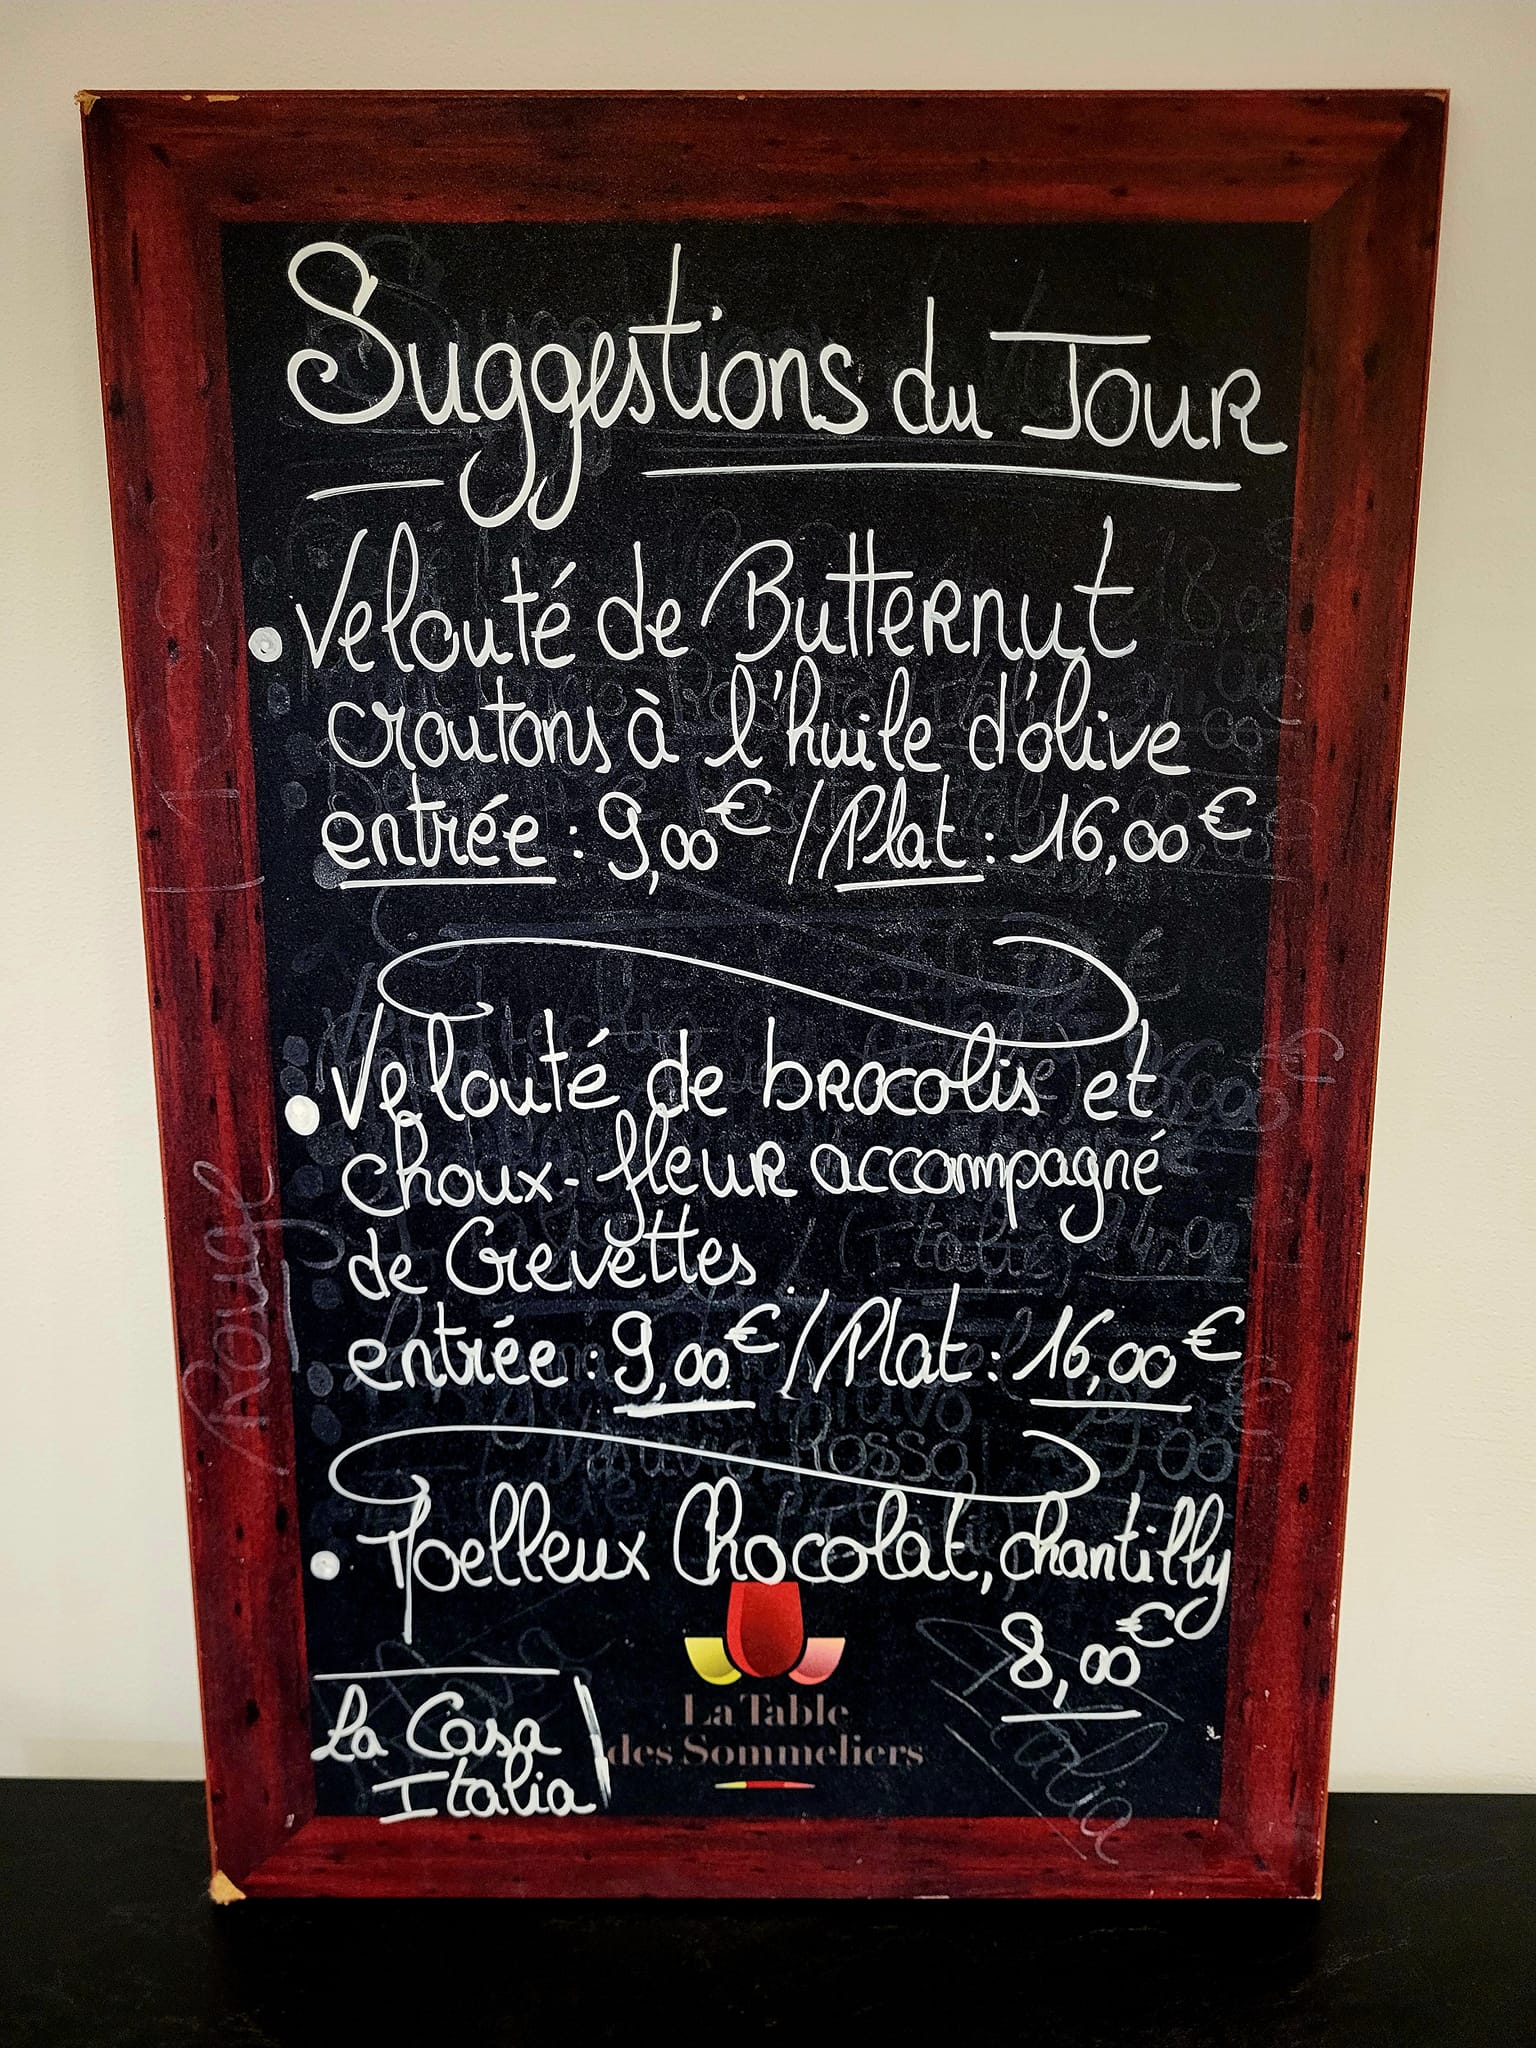 Suggestions du Jour
• Velouté de Butternut
croutons à l'huile d'olive
entrée : 9,00€ / Plat : 16,00€
• Velouté de brocolis et
choux-fleur accompagné
de Crevettes
entrée : 9,00€ / Plat : 16,00€
• Moelleux Chocolat, chantilly
8,00€
La Casa
Italia
La Table
des Sommeliers
Rouge
Italia